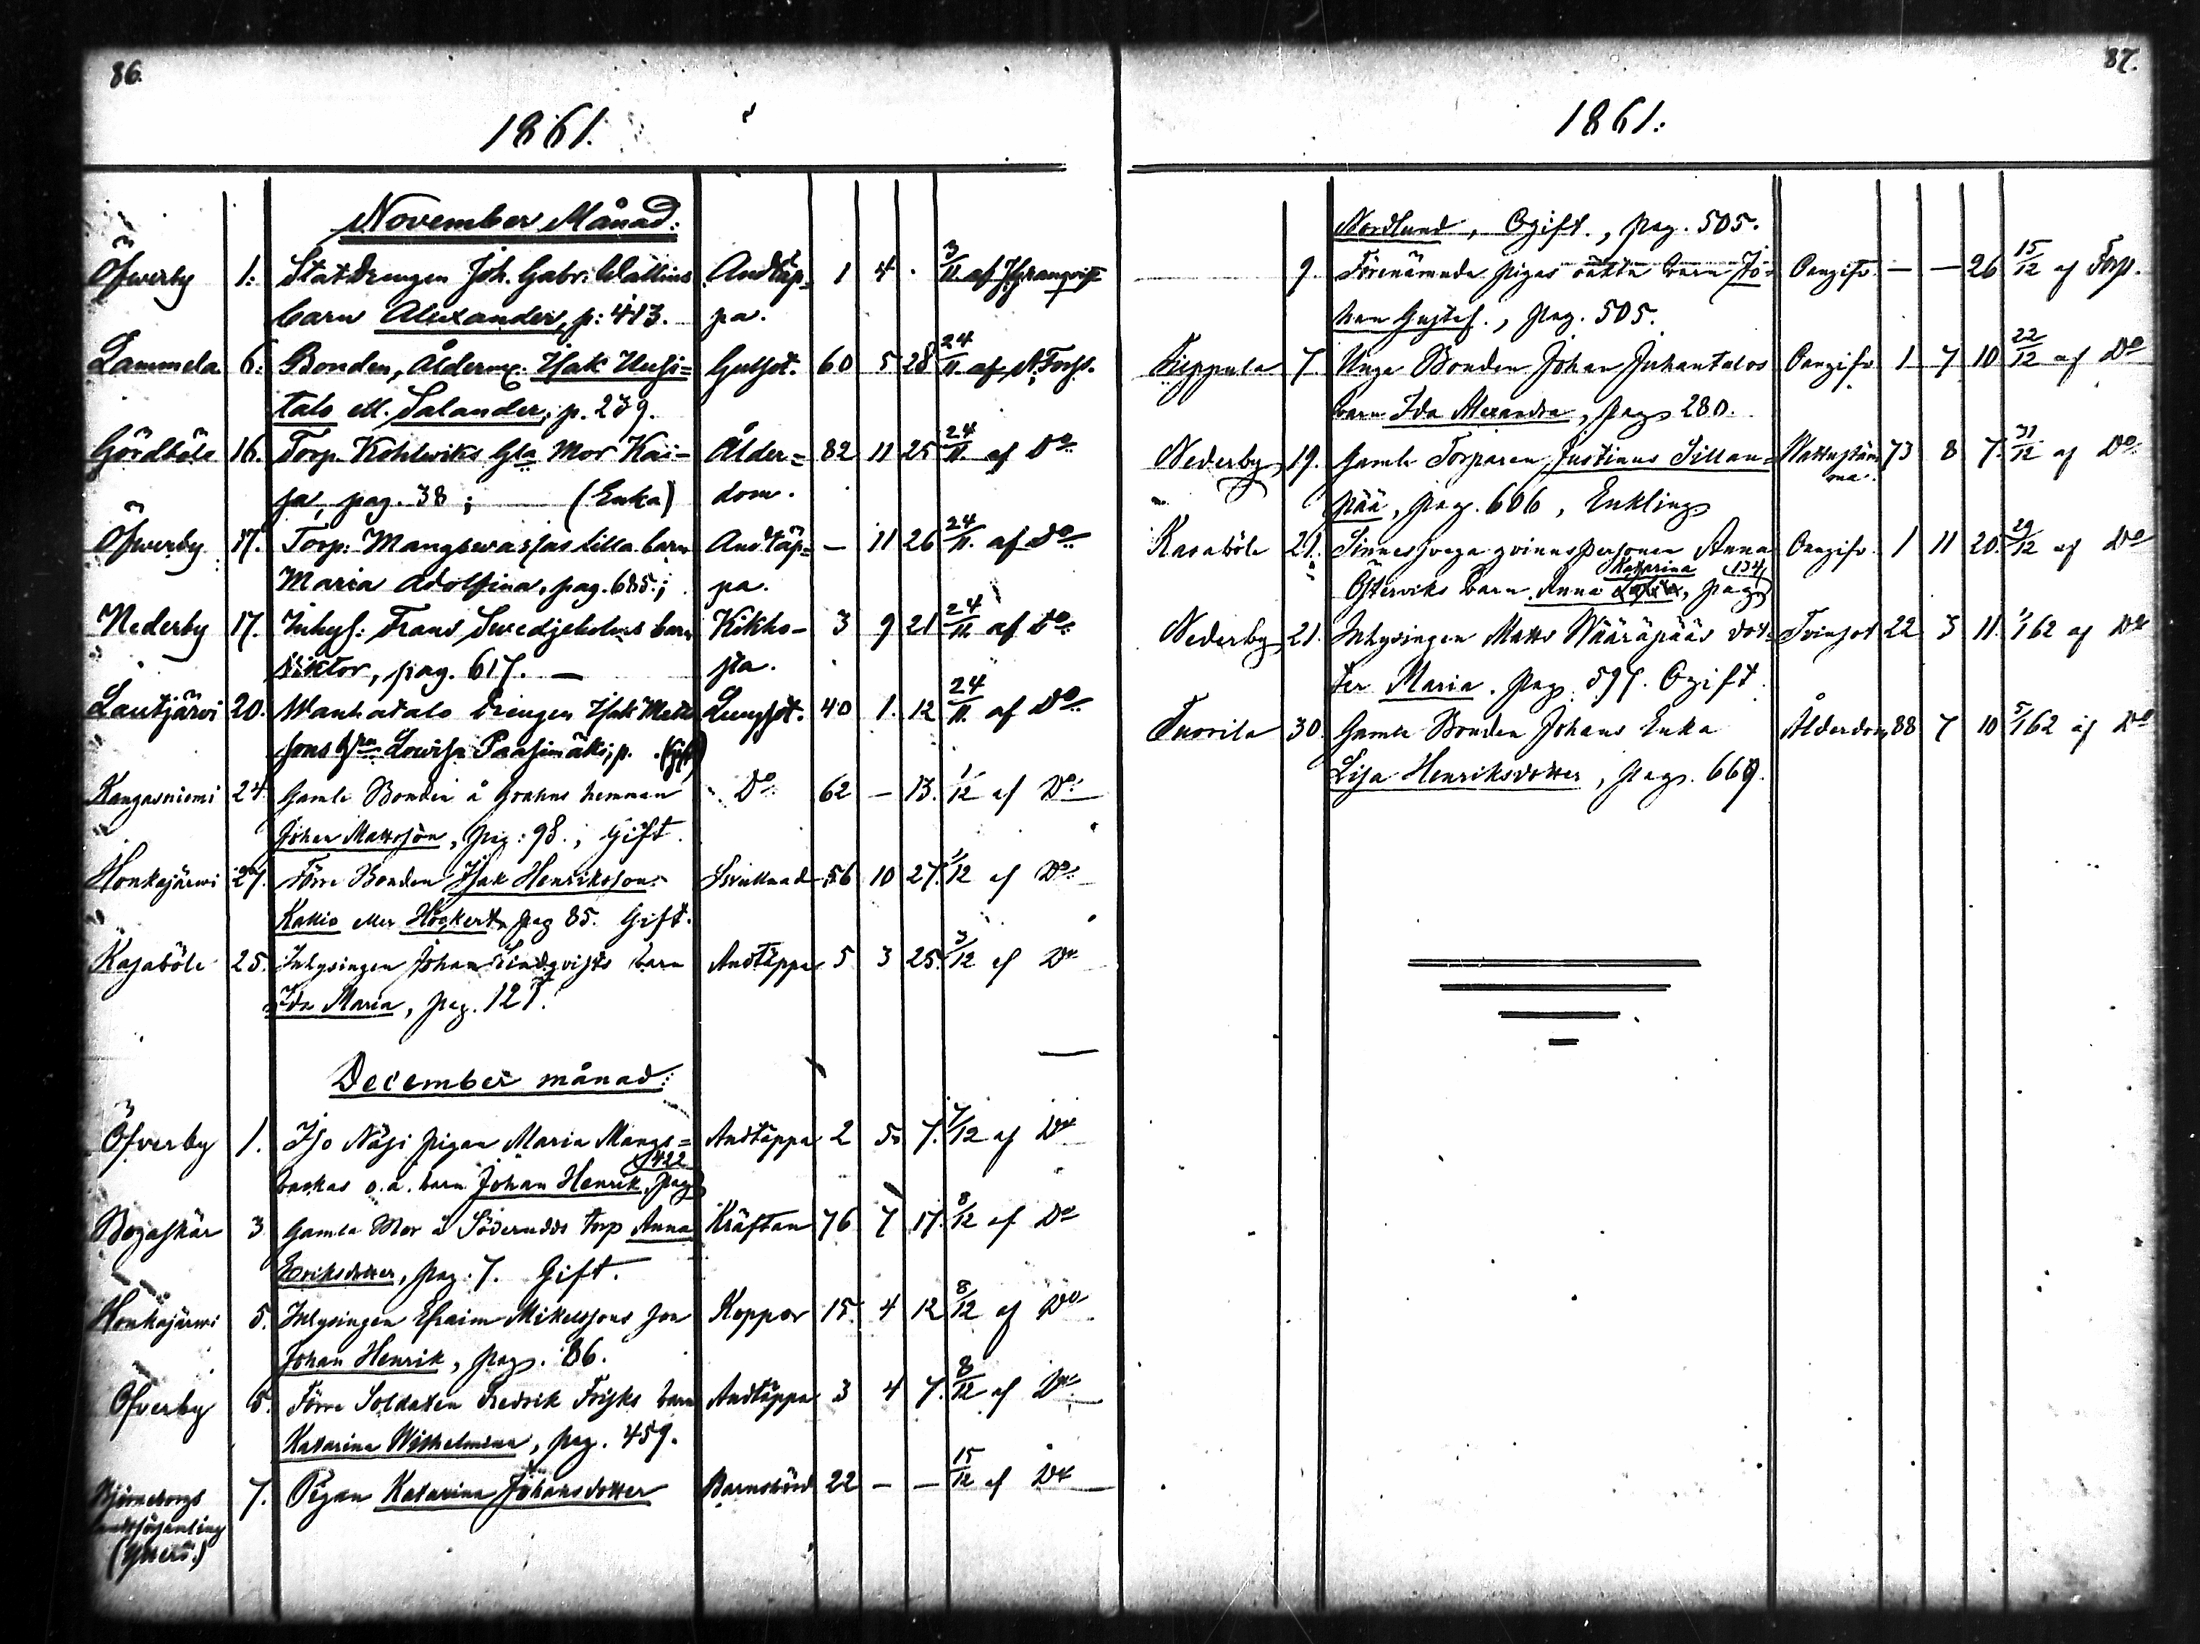 86.
1861.
November Månad:
Öfverby 1. Statdrengen Joh. Gabr. Wallins Andtäp= 1 4 . 3/11. af J. Granqvist
barn Alexander, p: 413. pa.
Lammela 6. Bonden, Ålderm. Isak Uusi= Gulsot. 60 5 28 24/11. af A. Forss.
talo ell. Salander, p. 239.
Gårdböle 16. Torp. Kohlwiks Gla Mor Kai= Ålder= 82 11 25 24/11. af Do
sa, pag. 38; (Enka) dom.
Öfverby 17. Torp: Mangswasjas lilla barn Andtäp= — 11 26 24/11. af Do
Maria Adolfina, pag. 685.; pa.
Nederby 17. Inhys: Frans Swedjeholms barn Kikho= 3 9 21 24/11. af Do
Viktor, pag. 617. — sta.
Lautjärvi 20. Wanhatalo drengen Isak Matts Lungsot. 40 1. 12 24/11. af Do
sons Lowisa Paasimäki, p. (Gift)
Kangasniemi 24. Gamle Bonden å Grahns hemman Do 62 — 13. 1/12 af Do
Johan Mattsson, pag: 98., Gift.
Honkajärwi 27. Förre Bonden Isak Henriksson 56 10 27. 1/12 af Do
Kallio eller Högkert, pag 85. Gift.
Kasaböle 25. Inhysingen Johan Lindqvists barn Andtäppa 5 3 25. 3/12 af Do
Ida Maria, pag. 127.
December månad:
Öfverby 1. Iso Näsi pigan Maria Mangs= Andtäppa 2 5 7. 7/12 af Do
422
backas o.ä. barn Johan Henrik, pag
3 Gamla Mor å Söderudds torp Anna Kräftan 76 7 17. 8/12 af Do
Eriksdotter, pag. 7. Gift.
Honkajärwi 5. Inhysingen Efraim Mikelssons son Koppor 15. 4 12 8/12 af Do
Johan Henrik, pag. 86.
Öfverby 5. Förre Soldaten Fredrik Frisks barn Andtäppa 3 4 7. 8/12 af Do
Katarina Wilhelmina, pag. 459.
Björneborgs 7. Pigan Katarina Johansdotter Barnsbörd 22 — — 15/12 af Do
landsförsamling
87.
1861.
Nordlund, Ogift., pag. 505.
9. Förenämnde pigas oäkta barn Jo= Oangifv. — — 26 15/12 af Forss.
han Gustaf., pag. 505.
Filppula 7. Unga Bonden Johan Juhantalos Oangifv. 1 7 10 22/12 af Do
barn Ida Alexandra, pag. 280.
Nederby 19. Gamle Torparen Justinus Sillan= 73 8 7. 31/12 af Do
pää, pag. 606, Enkling.
Kasaböle 21. Sinnessvaga qvinnspersonen Anna Oangifv. 1 11 20. 29/12 af Do
Katarina 134
Österviks barn Anna, pag
Nederby 21. Inhysingen Matts Wääräpääs dot= Tvinsot 22 3 11. 1/1 62 af Do
ter Maria. pag. 597. Ogift.
Tuorila 30. Gamle Bonden Johans Enka Ålderdom 88 7 10 5/1 62 af Do
Lisa Henriksdotter, pag. 669.